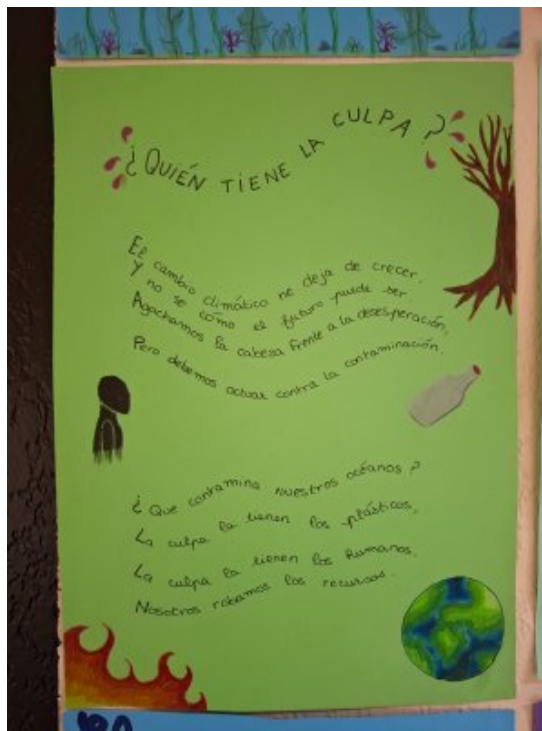 ¿QUIÉN TIENE LA CULPA?
El cambio climático ne deja de crecer.
Y no se cómo el futuro puede ser
Agachamos la cabeza frente a la desesperación,
Pero debemos actuar contra la contaminación.
¿Que contamina nuestros océanos?
La culpa la tienen los plásticos,
La culpa la tienen los humanos,
Nosotros robamos los recursos.